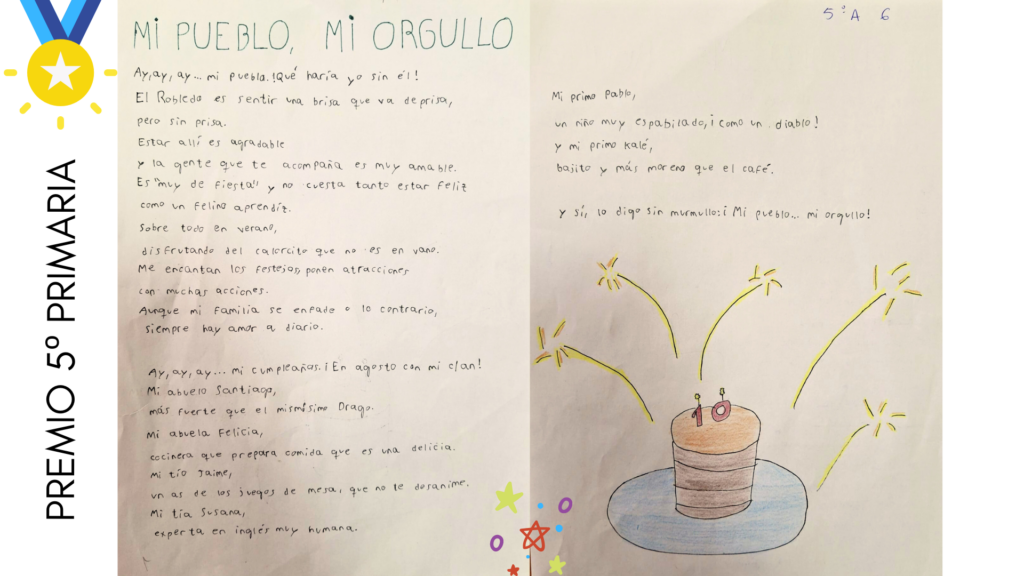 PREMIO 5º PRIMARIA
MI PUEBLO, MI ORGULLO
Ay, ay, ay... mi pueblo. ¡Qué haría yo sin él!
El Robledo es sentir una brisa que va deprisa,
pero sin prisa.
Estar allí es agradable
y la gente que te acompaña es muy amable.
Es "muy de fiesta" y no cuesta tanto estar feliz
como un felino aprendíz.
Sobre todo en verano,
disfrutando del calorcito que no es en vano.
Me encantan los festejos, ponen atracciones
con muchas acciones.
Aunque mi familia se enfade o lo contrario,
siempre hay amor a diario.
Ay, ay, ay... mi cumpleaños. ¡En agosto con mi clan!
Mi abuelo Santiago,
más fuerte que el mismísimo Drago.
Mi abuela Felicia,
cocinera que prepara comida que es una delicia.
Mi tío Jaime,
un as de los juegos de mesa, que no le desanime.
Mi tía Susana,
experta en inglés muy humana.
5º A 6
Mi primo Pablo,
un niño muy espabilado, ¡como un diablo!
y mi primo Kalé,
bajito y más moreno que el café.
y sí, lo digo sin murmullo: ¡Mi pueblo... mi orgullo!
10